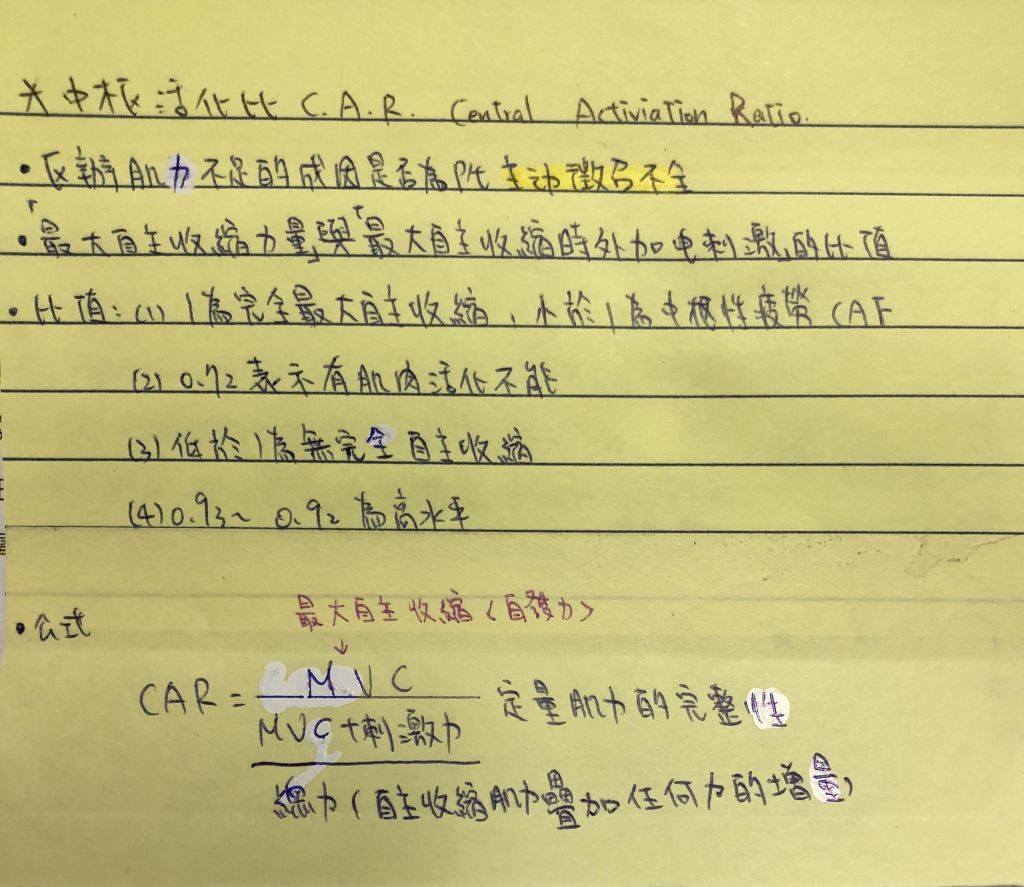 * 中樞活化比 C.A.R. Central Activiation Ratio.
• 区辨肌力不足的成因是否為pt 主动徵召不全
•「最大自主收縮力量」與「最大自主收縮時外加电刺激」的比值
• 比值: (1) 1為完全最大自主收縮，小於1為中樞性疲勞 CAF
(2) 0.72 表示有肌肉活化不能
(3) 低於1為無完全自主收縮
(4) 0.93~ 0.92 為高水平
• 公式
最大自主收縮〈自發力〉
↓
CAR = MVC
定量肌力的完整性
MVC+刺激力
總力(自主收縮肌力疊加任何力的增量)